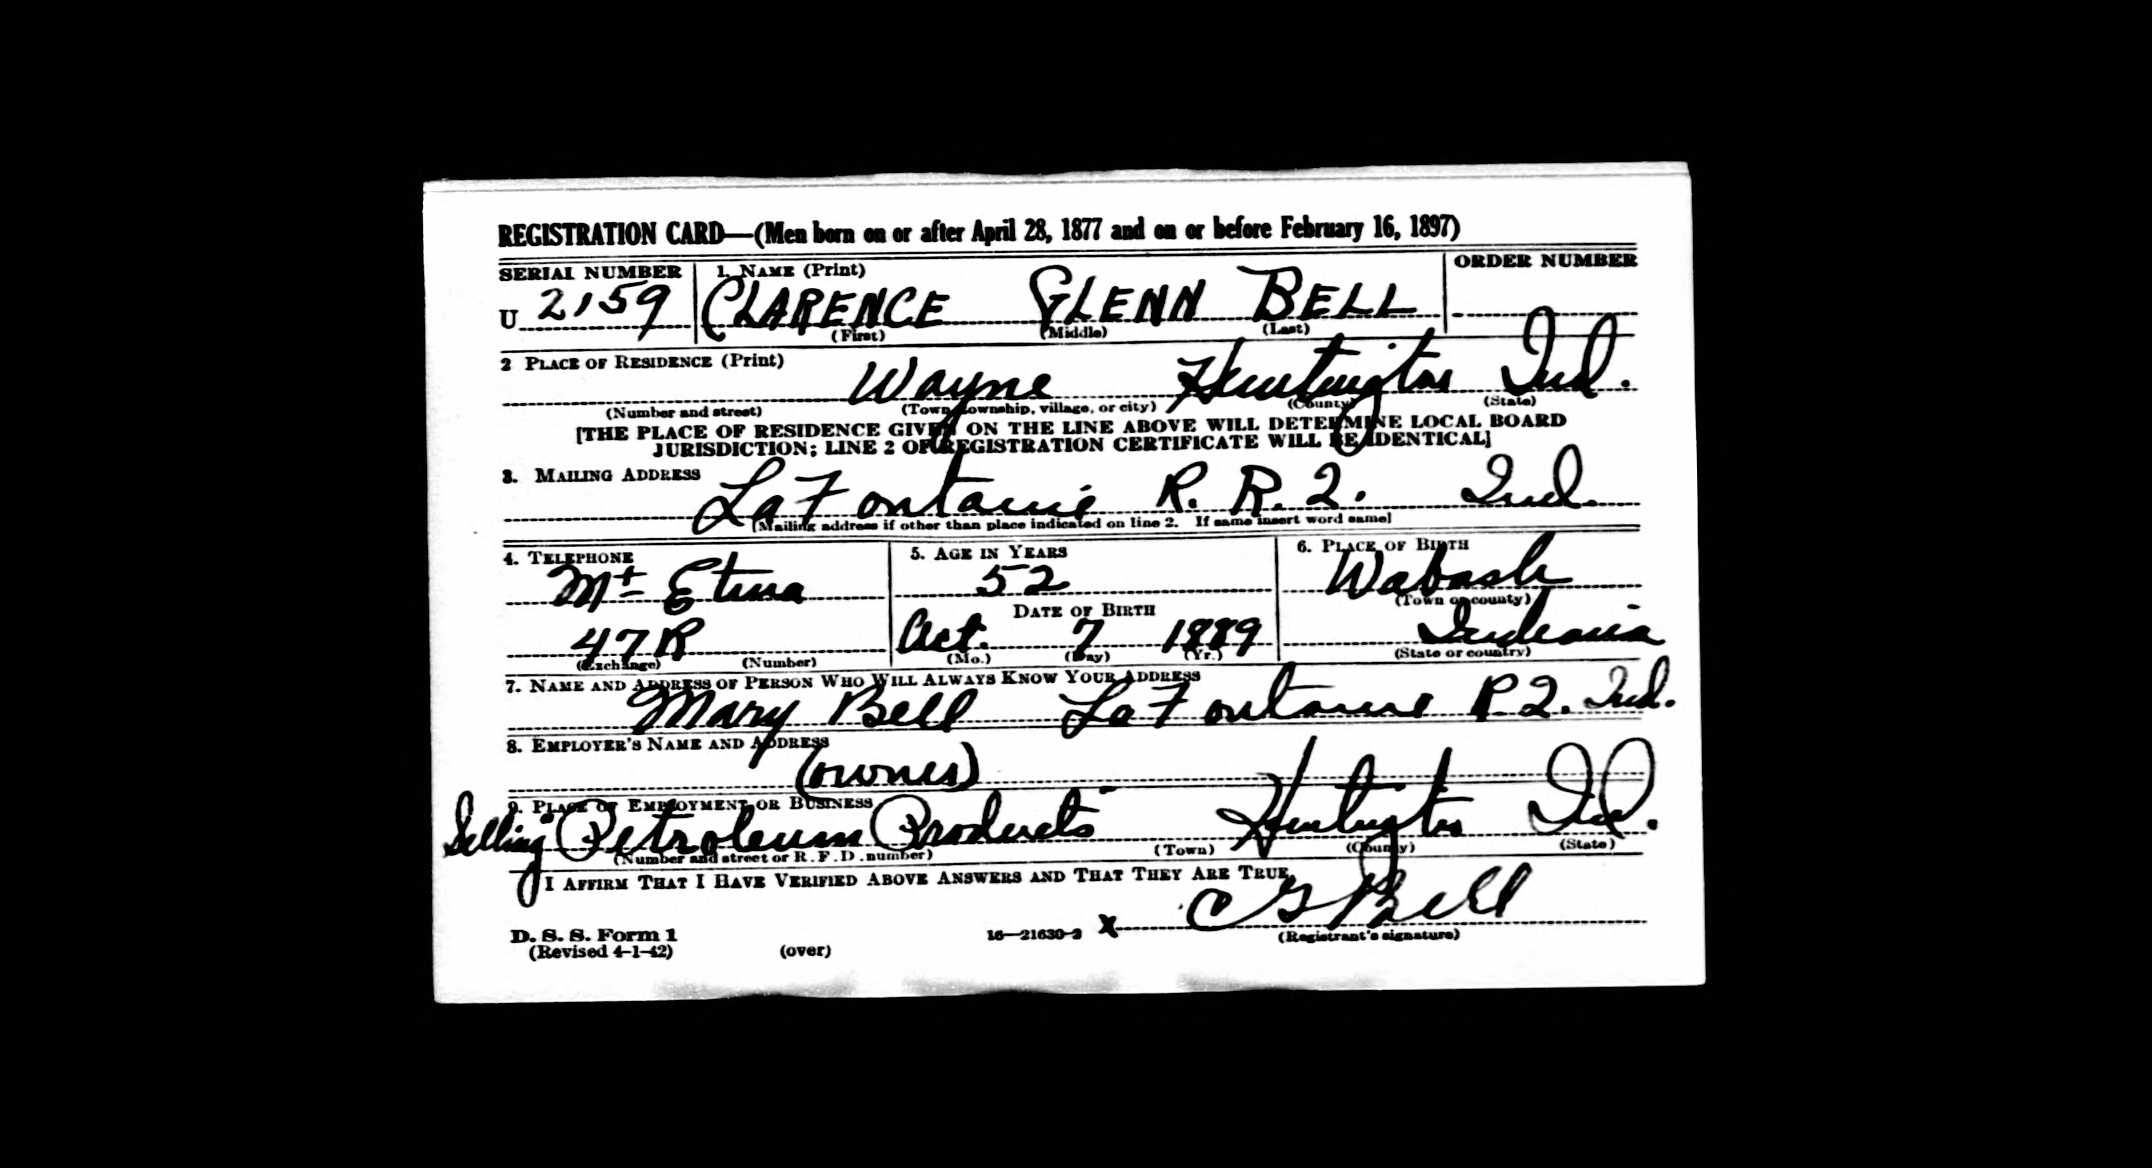 REGISTRATION CARD—(Men born on or after April 28, 1877 and on or before February 16, 1897)
SERIAL NUMBER 1. NAME (Print) ORDER NUMBER
U 2159 CLARENCE GLENN BELL
(First) (Middle) (Last)
2 PLACE OF RESIDENCE (Print)
Wayne Huntington Ind.
(Number and street) (Town, township, village, or city) (County) (State)
[THE PLACE OF RESIDENCE GIVEN ON THE LINE ABOVE WILL DETERMINE LOCAL BOARD
JURISDICTION; LINE 2 OF REGISTRATION CERTIFICATE WILL BE IDENTICAL]
3. MAILING ADDRESS
LaFontaine R. R. 2. Ind.
[Mailing address if other than place indicated on line 2. If same insert word same]
4. TELEPHONE 5. AGE IN YEARS 6. PLACE OF BIRTH
Mt Etna 52 Wabash
DATE OF BIRTH (Town or county)
47R Oct. 7 1889 Indiana
(Exchange) (Number) (Mo.) (Day) (Yr.) (State or country)
7. NAME AND ADDRESS OF PERSON WHO WILL ALWAYS KNOW YOUR ADDRESS
Mary Bell LaFontaine R2. Ind.
8. EMPLOYER'S NAME AND ADDRESS
(owner)
9. PLACE OF EMPLOYMENT OR BUSINESS
Selling Petroleum Products Huntington Ind.
(Number and street or R. F. D. number) (Town) (County) (State)
I AFFIRM THAT I HAVE VERIFIED ABOVE ANSWERS AND THAT THEY ARE TRUE.
C G Bell
D. S. S. Form 1 16—21630-2 X
(Registrant's signature)
(Revised 4-1-42) (over)